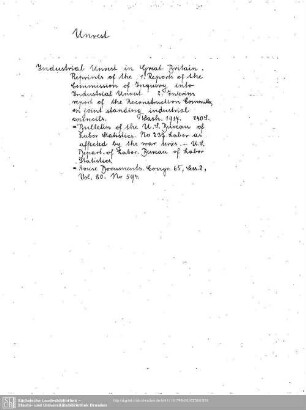 Unrest
Industrial Unrest in Great Britain.
Reprints of the 1. Reports of the
Commission of Inquiry into
Industrial Unrest 2. Interim
report of the Reconstruction Committee
on joint standing industrial
councils. Wash. 1917.
= Bulletin of the U.S. Bureau of
Labor Statistics. No 237. Labor as
affected by the war series. = U.S.
Depart. of Labor. Bureau of Labor
Statistics.
= House Documents. Congr. 65, Sess. 2,
Vol. 80. No